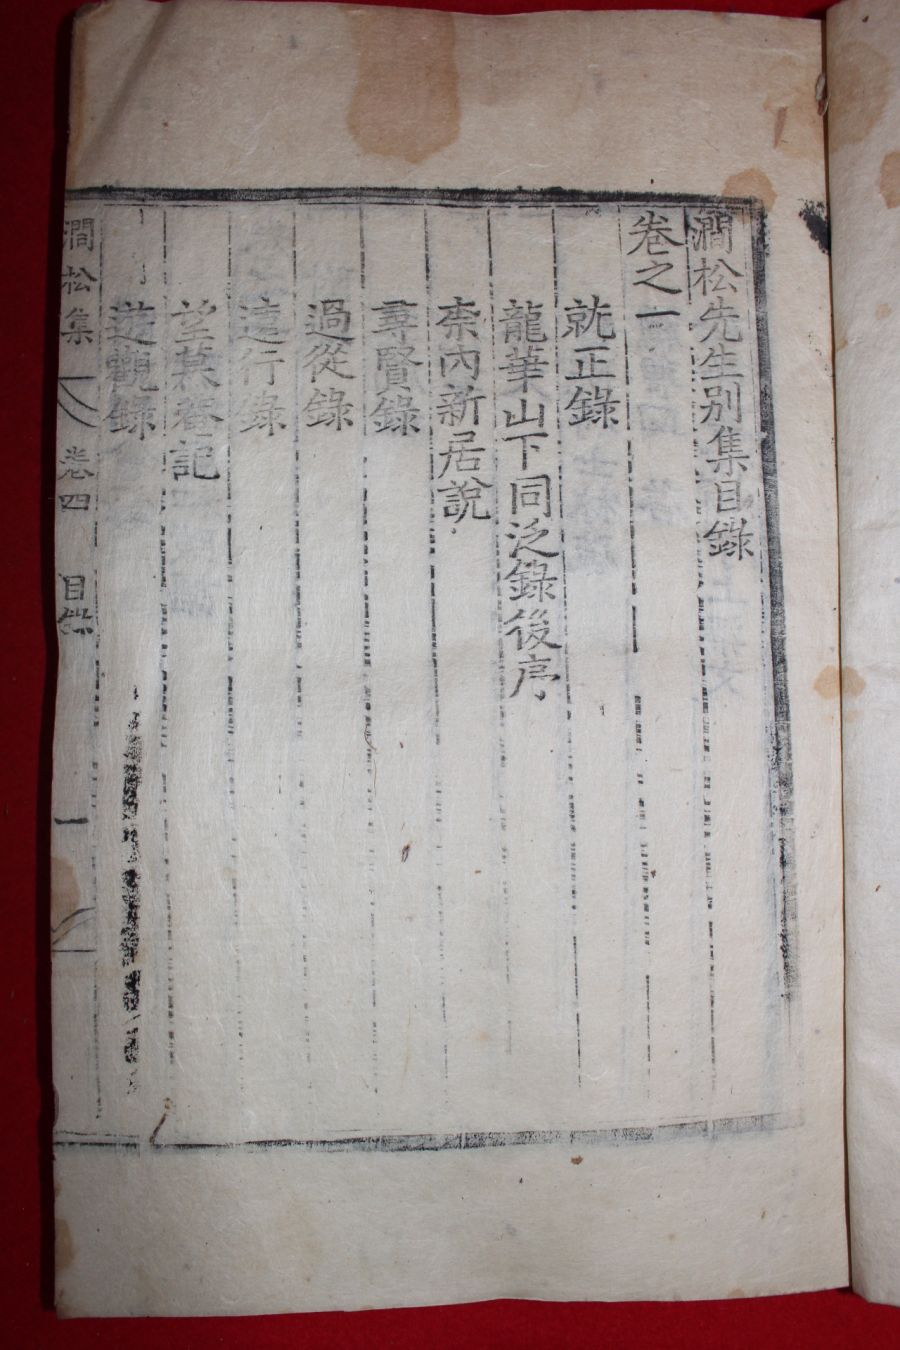 澗松先生別集目錄
卷之一
就正錄
龍華山下同泛錄後序
柰內新居說
尋賢錄
過從錄
遠行錄
望慕菴記
遊觀錄
澗松集 卷四 目錄 一